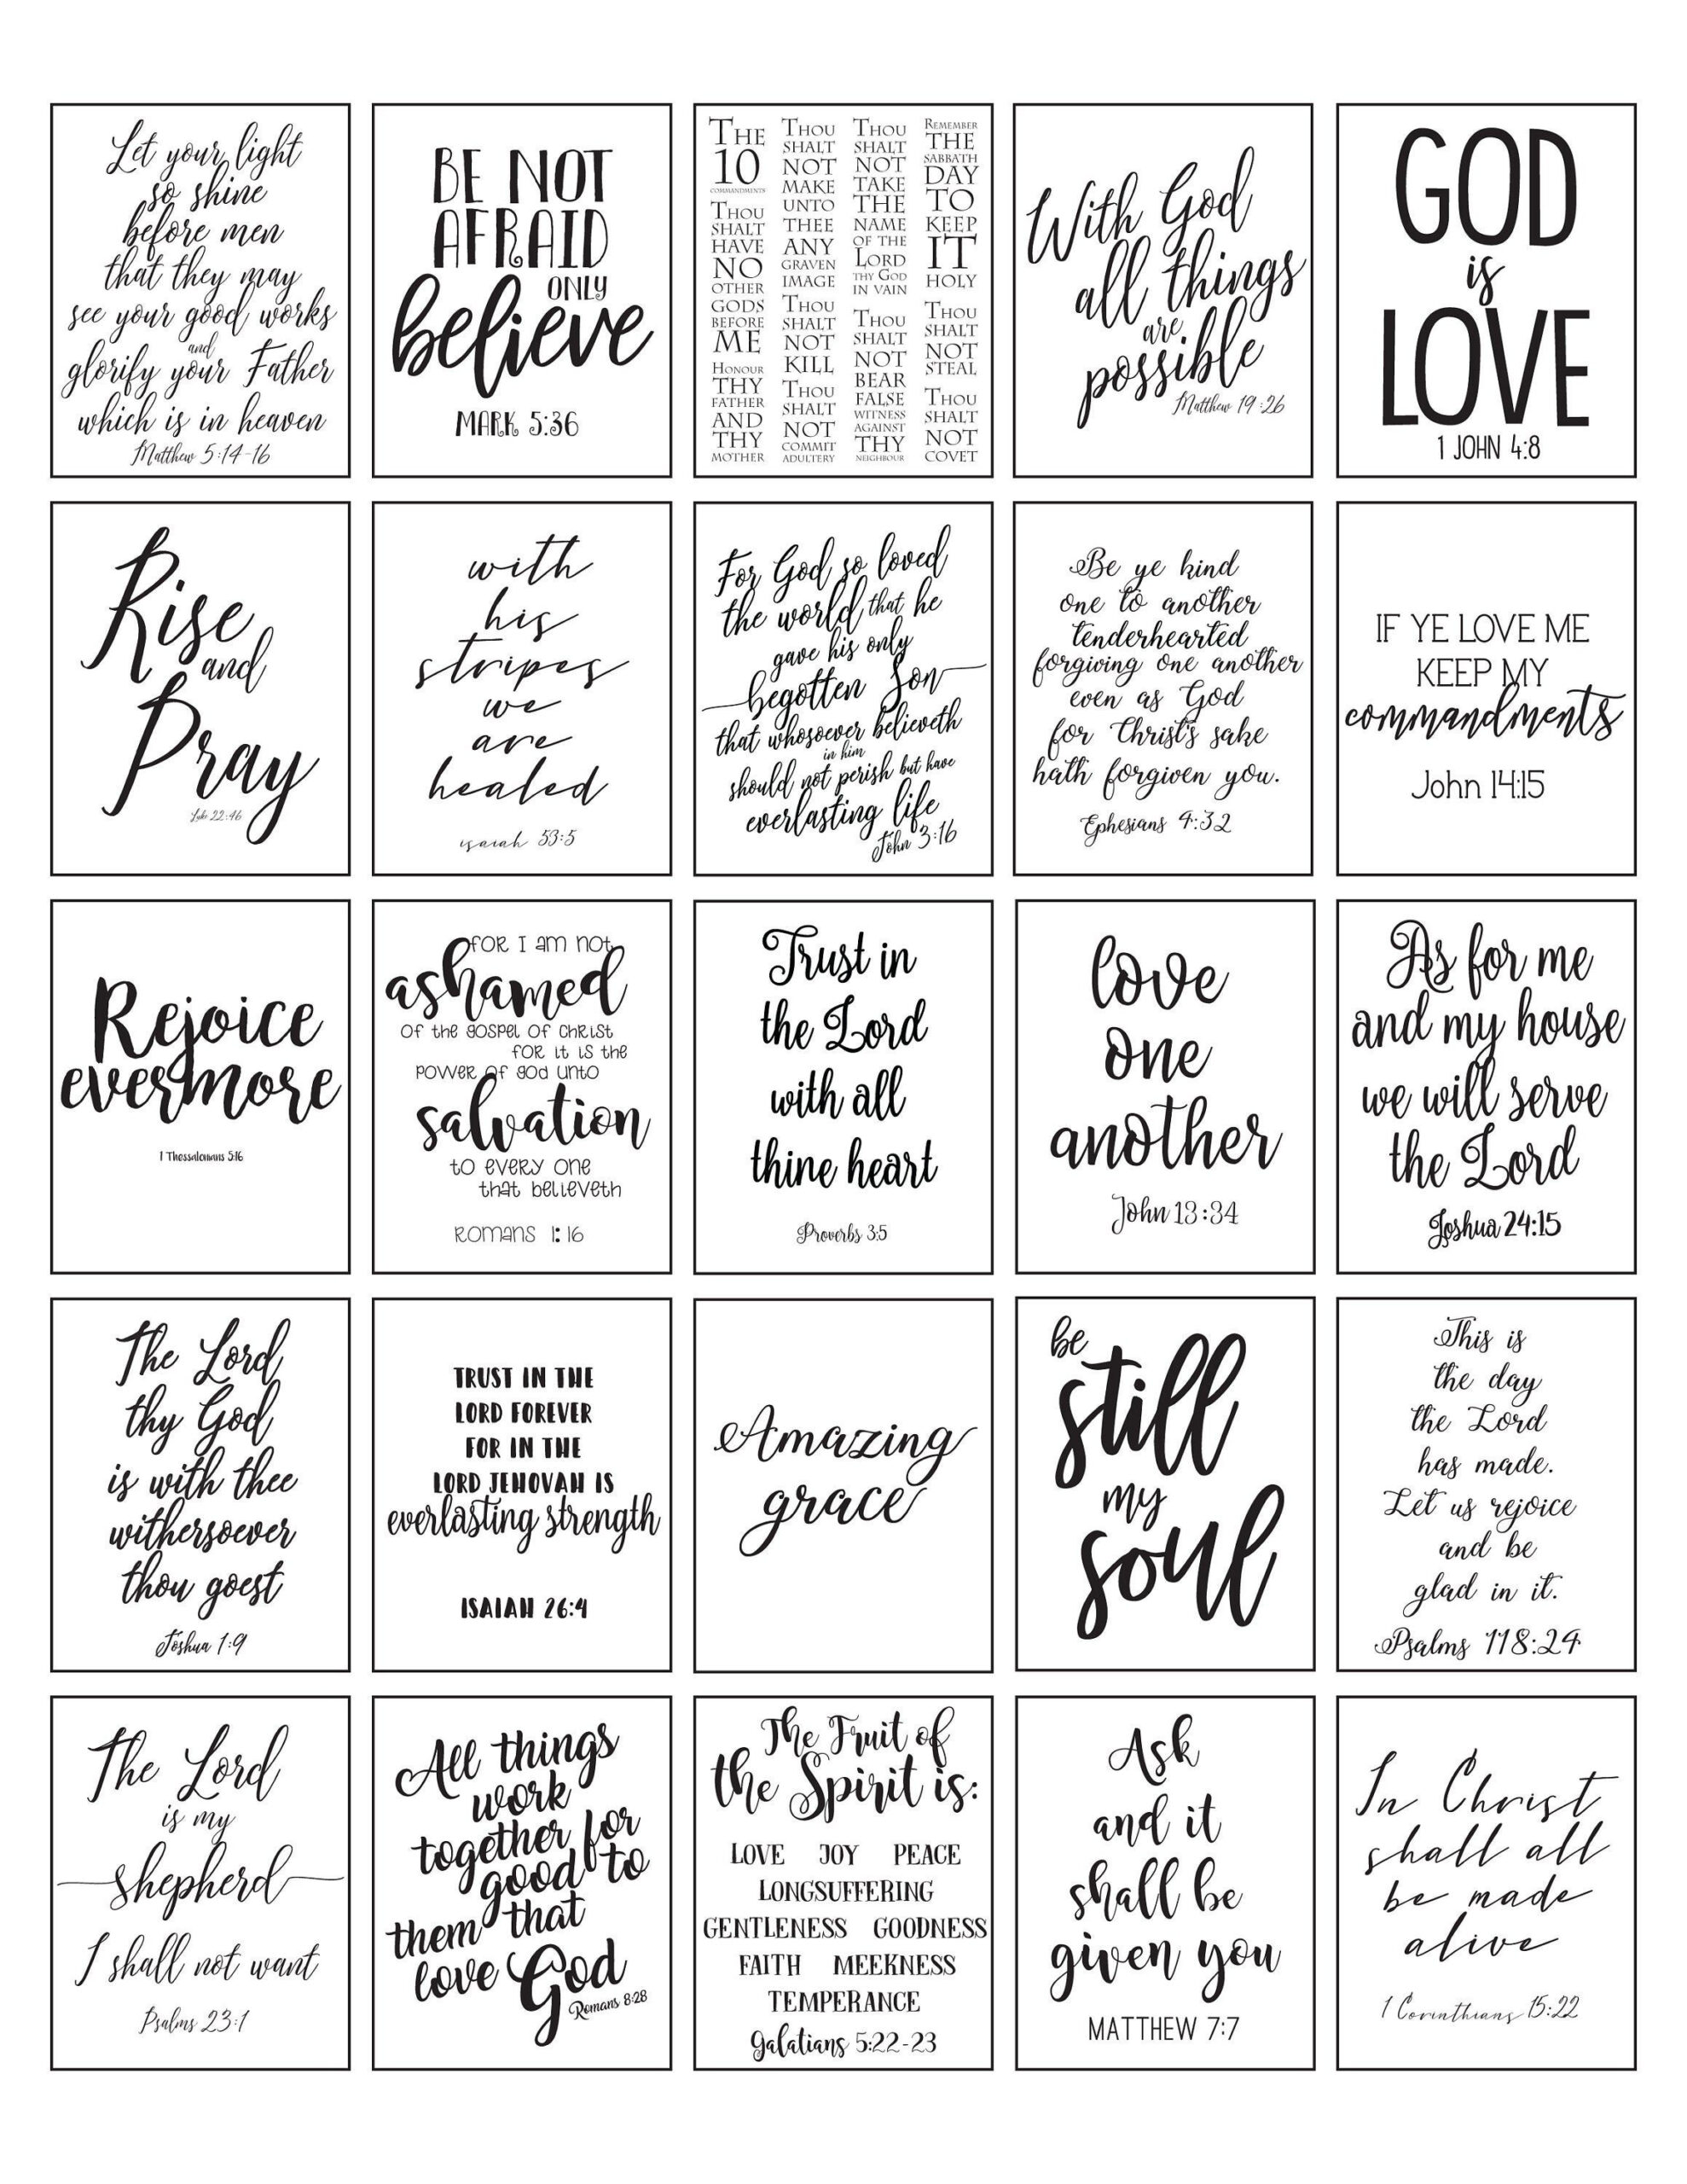 Let your light
so shine
before men
that they may
see your good works
and
glorify your Father
which is in heaven
Matthew 5:14-16
BE NOT
AFRAID
ONLY
believe
MARK 5:36
THE
10
COMMANDMENTS
THOU
SHALT
HAVE
NO
OTHER
GODS
BEFORE
ME
HONOUR
THY
FATHER
AND
THY
MOTHER
THOU
SHALT
NOT
MAKE
UNTO
THEE
ANY
GRAVEN
IMAGE
THOU
SHALT
NOT
KILL
THOU
SHALT
NOT
COMMIT
ADULTERY
THOU
SHALT
NOT
TAKE
THE
NAME
OF THE
LORD
THY GOD
IN VAIN
THOU
SHALT
NOT
BEAR
FALSE
WITNESS
AGAINST
THY
NEIGHBOUR
REMEMBER
THE
SABBATH
DAY
TO
KEEP
IT
HOLY
THOU
SHALT
NOT
STEAL
THOU
SHALT
NOT
COVET
With God
all things
are
possible
Matthew 19:26
GOD
is
LOVE
1 JOHN 4:8
Rise
and
Pray
Luke 22:46
with
his
stripes
we
are
healed
isaiah 53:5
For God so loved
the world that he
gave his only
begotten Son
that whosoever believeth
in him
should not perish but have
everlasting life
John 3:16
Be ye kind
one to another
tenderhearted
forgiving one another
even as God
for Christ's sake
hath forgiven you.
Ephesians 4:32
IF YE LOVE ME
KEEP MY
commandments
John 14:15
Rejoice
evermore
1 Thessalonians 5:16
FOR I am not
ashamed
of the gospel of Christ
for it is the
power of god unto
salvation
to every one
that believeth
Romans 1:16
Trust in
the Lord
with all
thine heart
Proverbs 3:5
love
one
another
John 13:34
As for me
and my house
we will serve
the Lord
Joshua 24:15
The Lord
thy God
is with thee
withersoever
thou goest
Joshua 1:9
TRUST IN THE
LORD FOREVER
FOR IN THE
LORD JEHOVAH IS
everlasting strength
ISAIAH 26:4
Amazing
grace
be
still
my
soul
This is
the day
the Lord
has made.
Let us rejoice
and be
glad in it.
Psalms 118:24
The Lord
is my
shepherd
I shall not want
Psalms 23:1
All things
work
together for
good to
them that
love God
Romans 8:28
The Fruit of
the Spirit is:
LOVE JOY PEACE
LONGSUFFERING
GENTLENESS GOODNESS
FAITH MEEKNESS
TEMPERANCE
Galatians 5:22-23
Ask
and it
shall be
given you
MATTHEW 7:7
In Christ
shall all
be made
alive
1 Corinthians 15:22